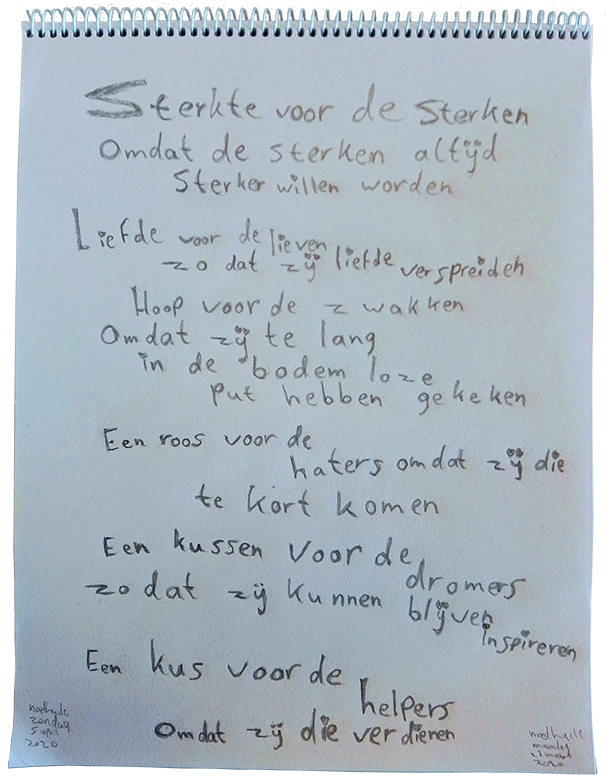 Sterkte voor de sterken
Omdat de sterken altijd
sterker willen worden
Liefde voor de lieven
zo dat zij liefde verspreiden
Hoop voor de z wakken
Omdat zij te lang
in de bodem loze
put hebben gekeken
Een roos voor de
haters omdat zij die
te kort komen
Een kussen voor de
dromers
zo dat zij kunnen blijven
inspireren
Een kus voor de
helpers
Omdat zij die verdienen
zondag
5 april
2020
2020